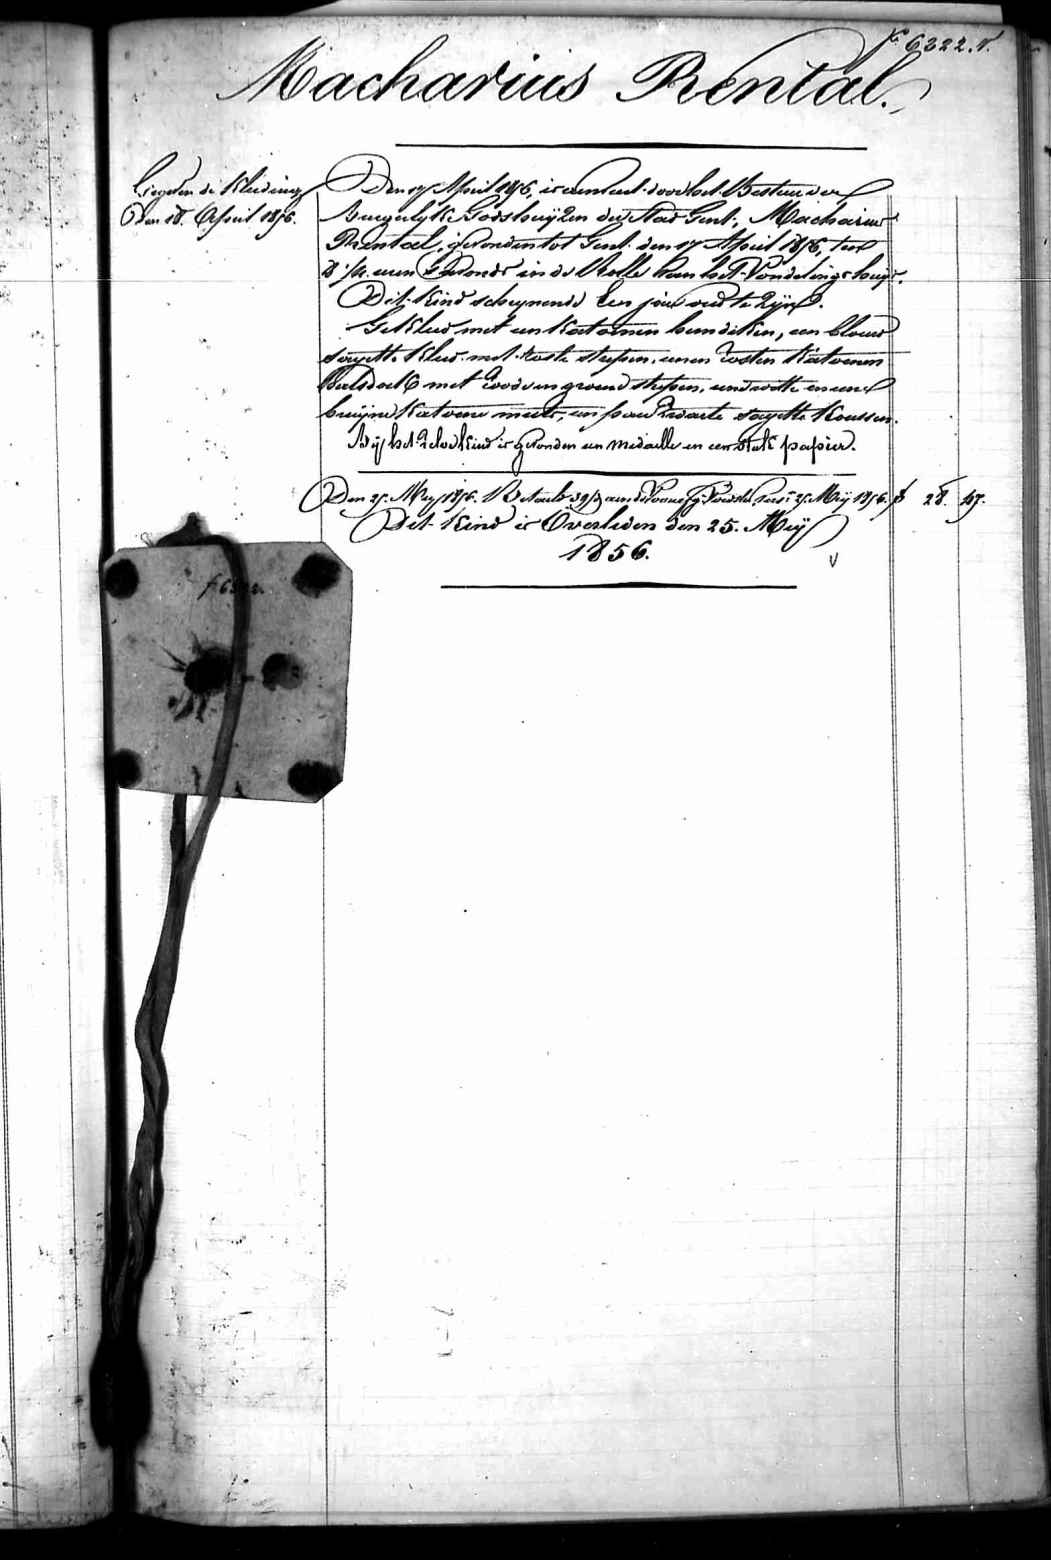 fo 6322. v.
Macharius Rental.
Gegeven de Kleeding
Den 18. April 1856.
Den 17 April 1856, is aanvaert door het Bestuur der
Burgerlyke Godshuyzen der Stad Gent, Macharius
Rental, gevonden tot Gent den 17 April 1856, ten
8 1/4 uren s'avonds in de Rolle van het Vondelingshuys.
Dit Kind schynende Een jaer oud te Zyn.
Gekleed met een Katoenen hemdeken, een blouw
sayette Kleed met roste strepen, eenen rosten Katoenen
halsdoek met rood en groene strepen, eene witte en eene
bruyne Katoene muts, een paer Zwarte sayette Koussen.
Bij het Zelve Kind is gevonden een medaille en een Stuk papier.
Den 25 Mey 1856. Betaelt 39/3 aen de 25 Meij 1856. f 28. 47.
Dit Kind is Overleden den 25. Meij
1856.